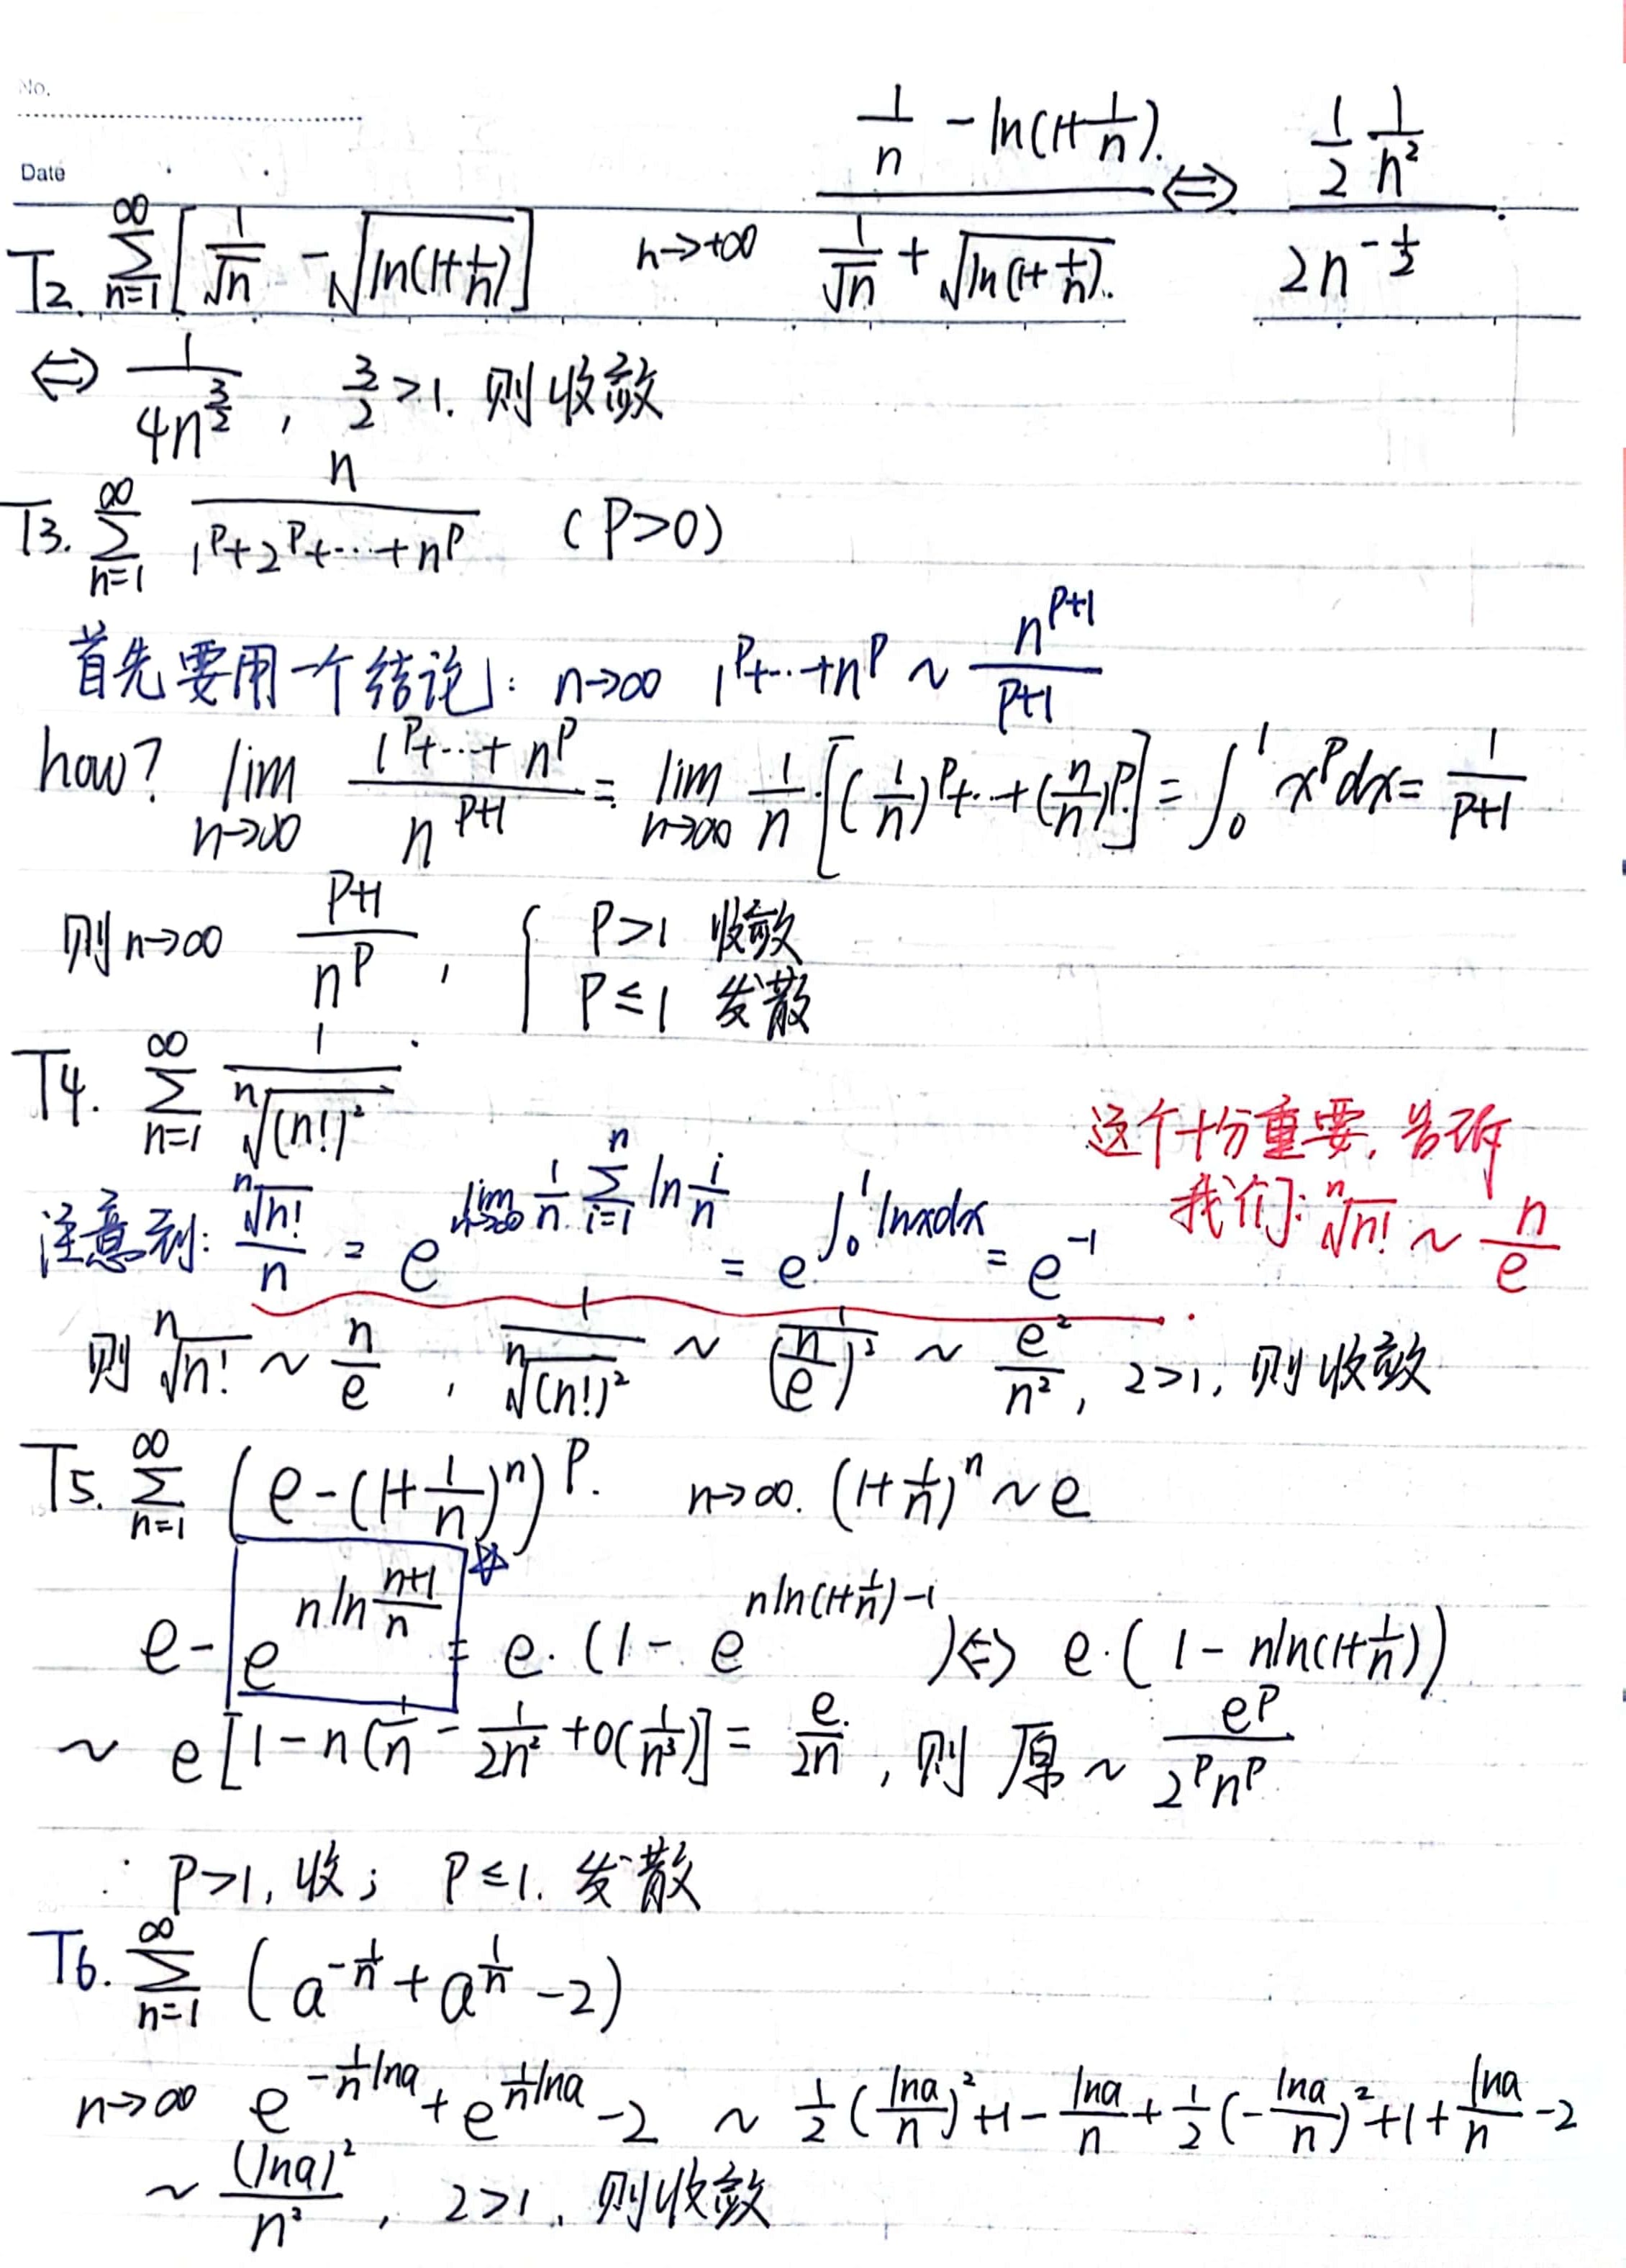 No.
Date
T2. $\sum_{n=1}^{\infty}\left[\frac{1}{\sqrt{n}}-\sqrt{\ln(1+\frac{1}{n})}\right]$ $n\to+\infty$ $\frac{\frac{1}{n}-\ln(1+\frac{1}{n}).}{\frac{1}{\sqrt{n}}+\sqrt{\ln(1+\frac{1}{n})}.}\Leftrightarrow\frac{\frac{1}{2}\frac{1}{n^2}}{2n^{-\frac{1}{2}}}$
$\Leftrightarrow\frac{1}{4n^{\frac{3}{2}}}$, $\frac{3}{2}>1$. 则收敛
T3. $\sum_{n=1}^{\infty}\frac{n}{1^p+2^p+\cdots+n^p}$ (P>0)
首先要用一个结论: $n\to\infty$ $1^p+\cdots+n^p\sim\frac{n^{p+1}}{p+1}$
how? $\lim_{n\to\infty}\frac{1^p+\cdots+n^p}{n^{p+1}}=\lim_{n\to\infty}\frac{1}{n}\cdot\left[(\frac{1}{n})^p+\cdots+(\frac{n}{n})^p\right]=\int_0^1 x^p dx=\frac{1}{p+1}$
则 $n\to\infty$ $\frac{p+1}{n^p}$, $\begin{cases}P>1\ 收敛\\P\le1\ 发散\end{cases}$
T4. $\sum_{n=1}^{\infty}\frac{1}{\sqrt[n]{(n!)^2}}$
这个十分重要, 告诉
我们: $\sqrt[n]{n!}\sim\frac{n}{e}$
注意到: $\frac{\sqrt[n]{n!}}{n}=e^{\lim_{n\to\infty}\frac{1}{n}\sum_{i=1}^{n}\ln\frac{i}{n}}=e^{\int_0^1\ln xdx}=e^{-1}$
则 $\sqrt[n]{n!}\sim\frac{n}{e}$, $\frac{1}{\sqrt[n]{(n!)^2}}\sim\frac{1}{(\frac{n}{e})^2}\sim\frac{e^2}{n^2}$, 2>1, 则收敛
T5. $\sum_{n=1}^{\infty}\left(e-(1+\frac{1}{n})^n\right)^p.$ $n\to\infty.$ $(1+\frac{1}{n})^n\sim e$
$e-e^{n\ln\frac{n+1}{n}}=e\cdot(1-e^{n\ln(1+\frac{1}{n})-1})\Leftrightarrow e\cdot(1-n\ln(1+\frac{1}{n}))$
$\sim e\left[1-n(\frac{1}{n}-\frac{1}{2n^2}+o(\frac{1}{n^3})\right]=\frac{e}{2n}$, 则 原 $\sim\frac{e^p}{2^pn^p}$
∴ P>1, 收; P≤1. 发散
T6. $\sum_{n=1}^{\infty}(a^{-\frac{1}{n}}+a^{\frac{1}{n}}-2)$
$n\to\infty$ $e^{-\frac{1}{n}\ln a}+e^{\frac{1}{n}\ln a}-2\sim\frac{1}{2}(\frac{\ln a}{n})^2+1-\frac{\ln a}{n}+\frac{1}{2}(-\frac{\ln a}{n})^2+1+\frac{\ln a}{n}-2$
$\sim\frac{(\ln a)^2}{n^2}$, 2>1, 则收敛